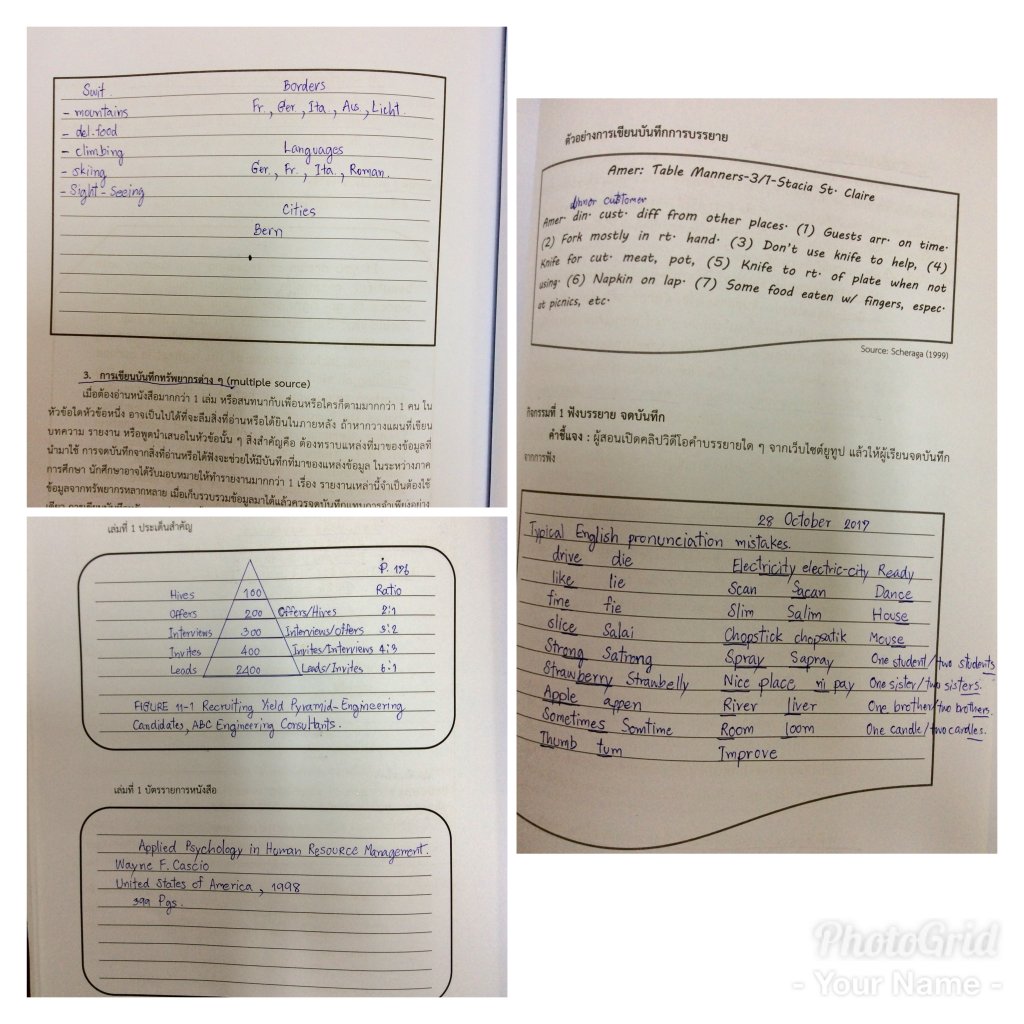 Swit. Borders
- mountains Fr., Ger., Ita., Aus., Licht.
- del. food
- climbing Languages
- skiing Ger., Fr., Ita., Roman.
- Sight-seeing
Cities
Bern
3. การเขียนบันทึกทรัพยากรต่าง ๆ (multiple source)
เมื่อต้องอ่านหนังสือมากกว่า 1 เล่ม หรือสนทนากับเพื่อนหรือใครก็ตามมากกว่า 1 คน ใน
หัวข้อใดหัวข้อหนึ่ง อาจเป็นไปได้ที่จะลืมสิ่งที่อ่านหรือได้ยินในภายหลัง ถ้าหากวางแผนที่เขียน
บทความ รายงาน หรือพูดนำเสนอในหัวข้อนั้น ๆ สิ่งสำคัญคือ ต้องทราบแหล่งที่มาของข้อมูลที่
นำมาใช้ การจดบันทึกจากสิ่งที่อ่านหรือได้ฟังจะช่วยให้มีบันทึกที่มาของแหล่งข้อมูล ในระหว่างภาค
การศึกษา นักศึกษาอาจได้รับมอบหมายให้ทำรายงานมากกว่า 1 เรื่อง รายงานเหล่านี้จำเป็นต้องใช้
ข้อมูลจากทรัพยากรหลากหลาย เมื่อเก็บรวบรวมข้อมูลมาได้แล้วควรจดบันทึก
เล่มที่ 1 ประเด็นสำคัญ
P. 196
Hives 100 Ratio
Offers 200 Offers/Hives 2:1
Interviews 300 Interviews/Offers 3:2
Invites 400 Invites/Interviews 4:3
Leads 2400 Leads/Invites 6:1
FIGURE 11-1 Recruiting Yield Pyramid-Engineering
Candidates, ABC Engineering Consultants.
เล่มที่ 1 บัตรรายการหนังสือ
Applied Psychology in Human Resource Management.
Wayne F. Cascio
United States of America, 1998
399 Pgs.
ตัวอย่างการเขียนบันทึกการบรรยาย
Amer: Table Manners-3/1-Stacia St. Claire
dinner customer
Amer. din. cust. diff from other places. (1) Guests arr. on time.
(2) Fork mostly in rt. hand. (3) Don't use knife to help, (4)
Knife for cut. meat, pot, (5) Knife to rt. of plate when not
using. (6) Napkin on lap. (7) Some food eaten w/ fingers, espec.
at picnics, etc.
Source: Scheraga (1999)
กิจกรรมที่ 1 ฟังบรรยาย จดบันทึก
คำชี้แจง : ผู้สอนเปิดคลิปวิดีโอคำบรรยายใด ๆ จากเว็บไซต์ยูทูป แล้วให้ผู้เรียนจดบันทึก
จากการฟัง
28 October 2017
Typical English pronunciation mistakes.
drive die Electricity electric-city Ready
like lie Scan Sacan Dance
fine fie Slim Salim House
slice Salai Chopstick chopsatik Mouse
Strong Satrong Spray Sapray One student/two students
Strawberry Strawbelly Nice place ni pay One sister/two sisters.
Apple appen River liver One brother/two brothers.
Sometimes Somtime Room loom One candle/two candles.
Thumb tum Improve
PhotoGrid
- Your Name -